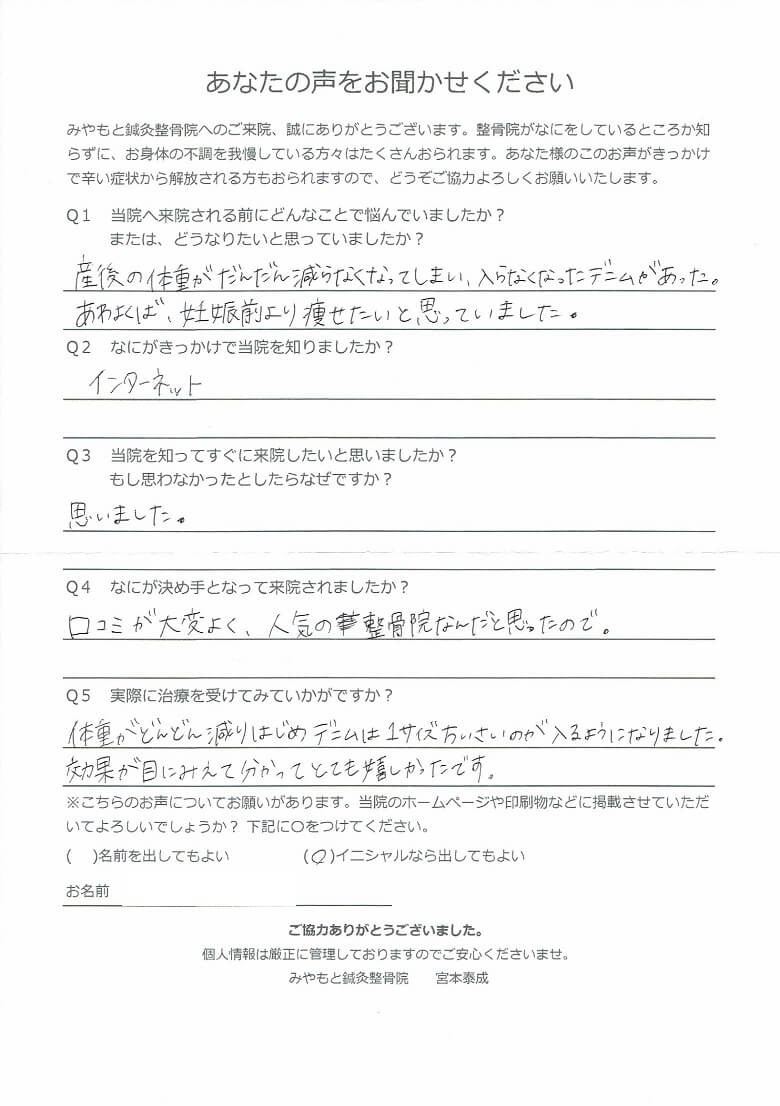 あなたの声をお聞かせください
みやもと鍼灸整骨院へのご来院、誠にありがとうございます。整骨院がなにをしているところか知
らずに、お身体の不調を我慢している方々はたくさんおられます。あなた様のこのお声がきっかけ
で辛い症状から解放される方もおられますので、どうぞご協力よろしくお願いいたします。
Q1 当院へ来院される前にどんなことで悩んでいましたか?
または、どうなりたいと思っていましたか?
産後の体重がだんだん減らなくなってしまい、入らなくなったデニムがあった。
あわよくば、妊娠前より痩せたいと思っていました。
Q2 なにがきっかけで当院を知りましたか?
インターネット
Q3 当院を知ってすぐに来院したいと思いましたか?
もし思わなかったとしたらなぜですか?
思いました。
Q4 なにが決め手となって来院されましたか?
口コミが大変よく、人気の整骨院なんだと思ったので。
Q5 実際に治療を受けてみていかがですか?
体重がどんどん減りはじめデニムは1サイズちいさいのが入るようになりました。
効果が目にみえて分かってとても嬉しかったです。
※こちらのお声についてお願いがあります。当院のホームページや印刷物などに掲載させていただ
いてよろしいでしょうか? 下記に○をつけてください。
( )名前を出してもよい (○)イニシャルなら出してもよい
お名前
ご協力ありがとうございました。
個人情報は厳正に管理しておりますのでご安心くださいませ。
みやもと鍼灸整骨院 宮本泰成